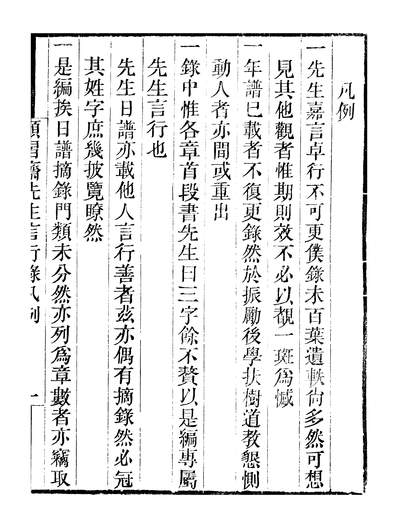 凡例
一先生嘉言卓行不可更僕錄未百葉遺軼尚多然可想
見其他觀者惟期則效不必以覩一斑爲憾
一年譜已載者不復更錄然於振勵後學扶樹道教懇惻
動人者亦間或重出
一錄中惟各章首段書先生曰三字餘不贅以是編專屬
先生言行也
先生日譜亦載他人言行善者茲亦偶有摘錄然必冠
其姓字庶幾披覽瞭然
一是編挨日譜摘錄門類未分然亦列爲章數者亦竊取
顏習齋先生言行錄凡例
一